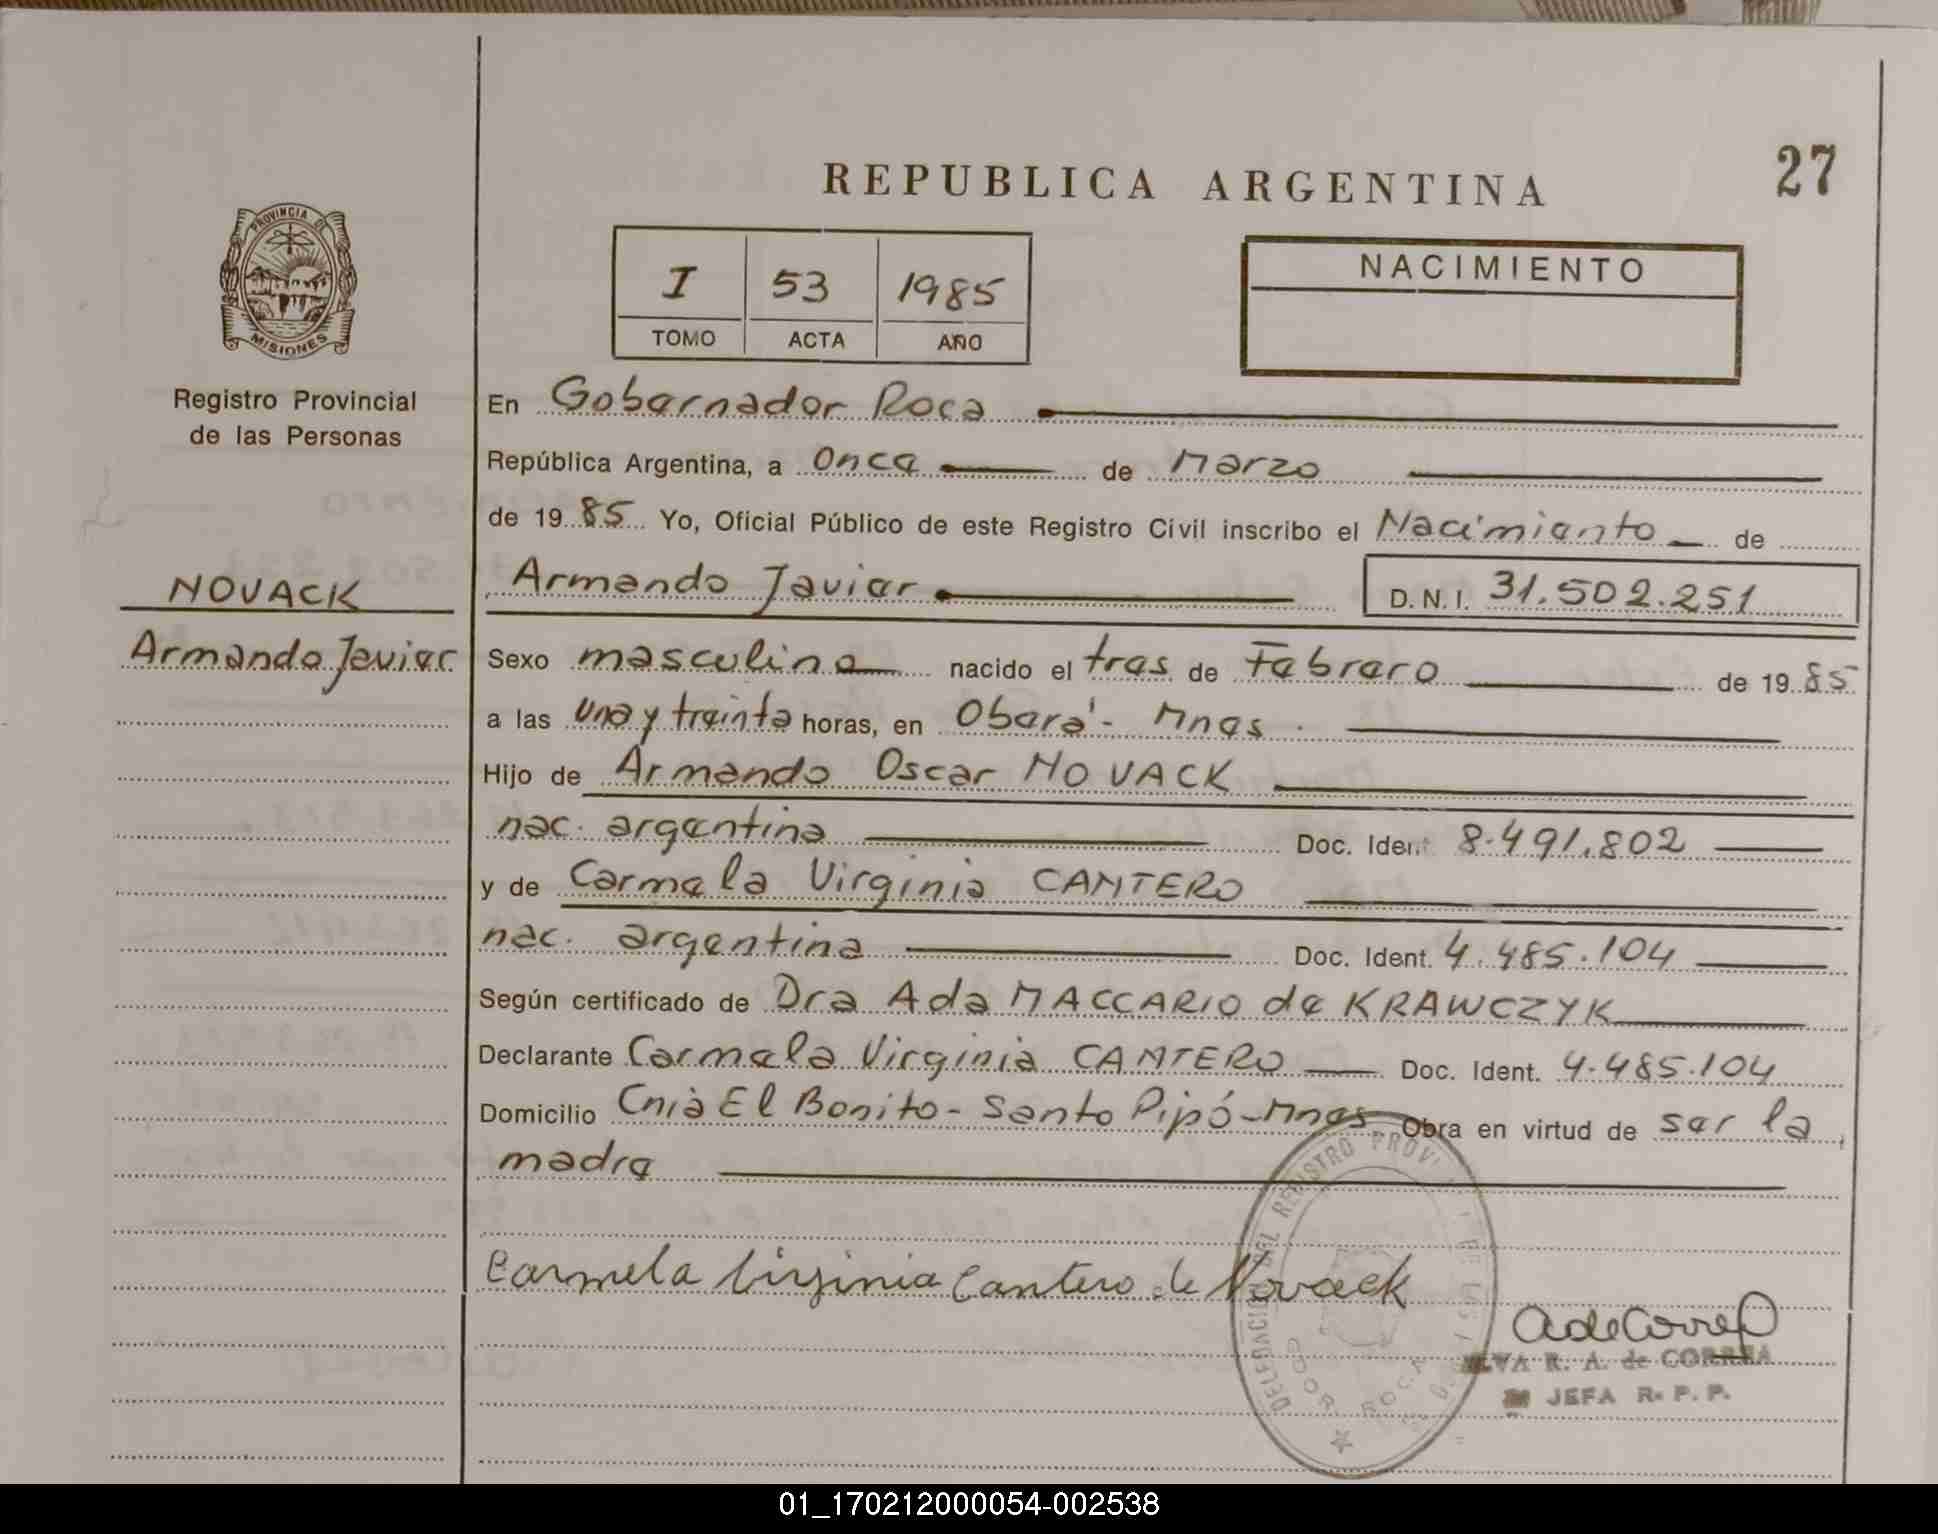 REPUBLICA ARGENTINA
27
PROVINCIA DE
MISIONES
Registro Provincial
de las Personas
I 53 1985
TOMO ACTA AÑO
NACIMIENTO
En Gobernador Roca
República Argentina, a Once de Marzo
de 1985 Yo, Oficial Público de este Registro Civil inscribo el Nacimiento de
NOVACK
Armando Javier
Armando Javier D.N.I. 31.502.251
Sexo masculino nacido el tres de Febrero de 1985
a las una y treinta horas, en Oberá - Mnes.
Hijo de Armando Oscar NOVACK
nac. argentina Doc. Ident. 8.491.802
y de Carmela Virginia CANTERO
nac. argentina Doc. Ident. 4.485.104
Según certificado de Dra Ada MACCARIO de KRAWCZYK
Declarante Carmela Virginia CANTERO Doc. Ident. 4.485.104
Domicilio Cnia El Bonito - Santo Pipó - Mnes Obra en virtud de ser la
madre
Carmela Virginia Cantero de Novack
DELEGACION DEL REGISTRO PROV
GDOR. ROCA
AdeCorrea
R. A. de CORREA
JEFA R. P. P.
01_170212000054-002538